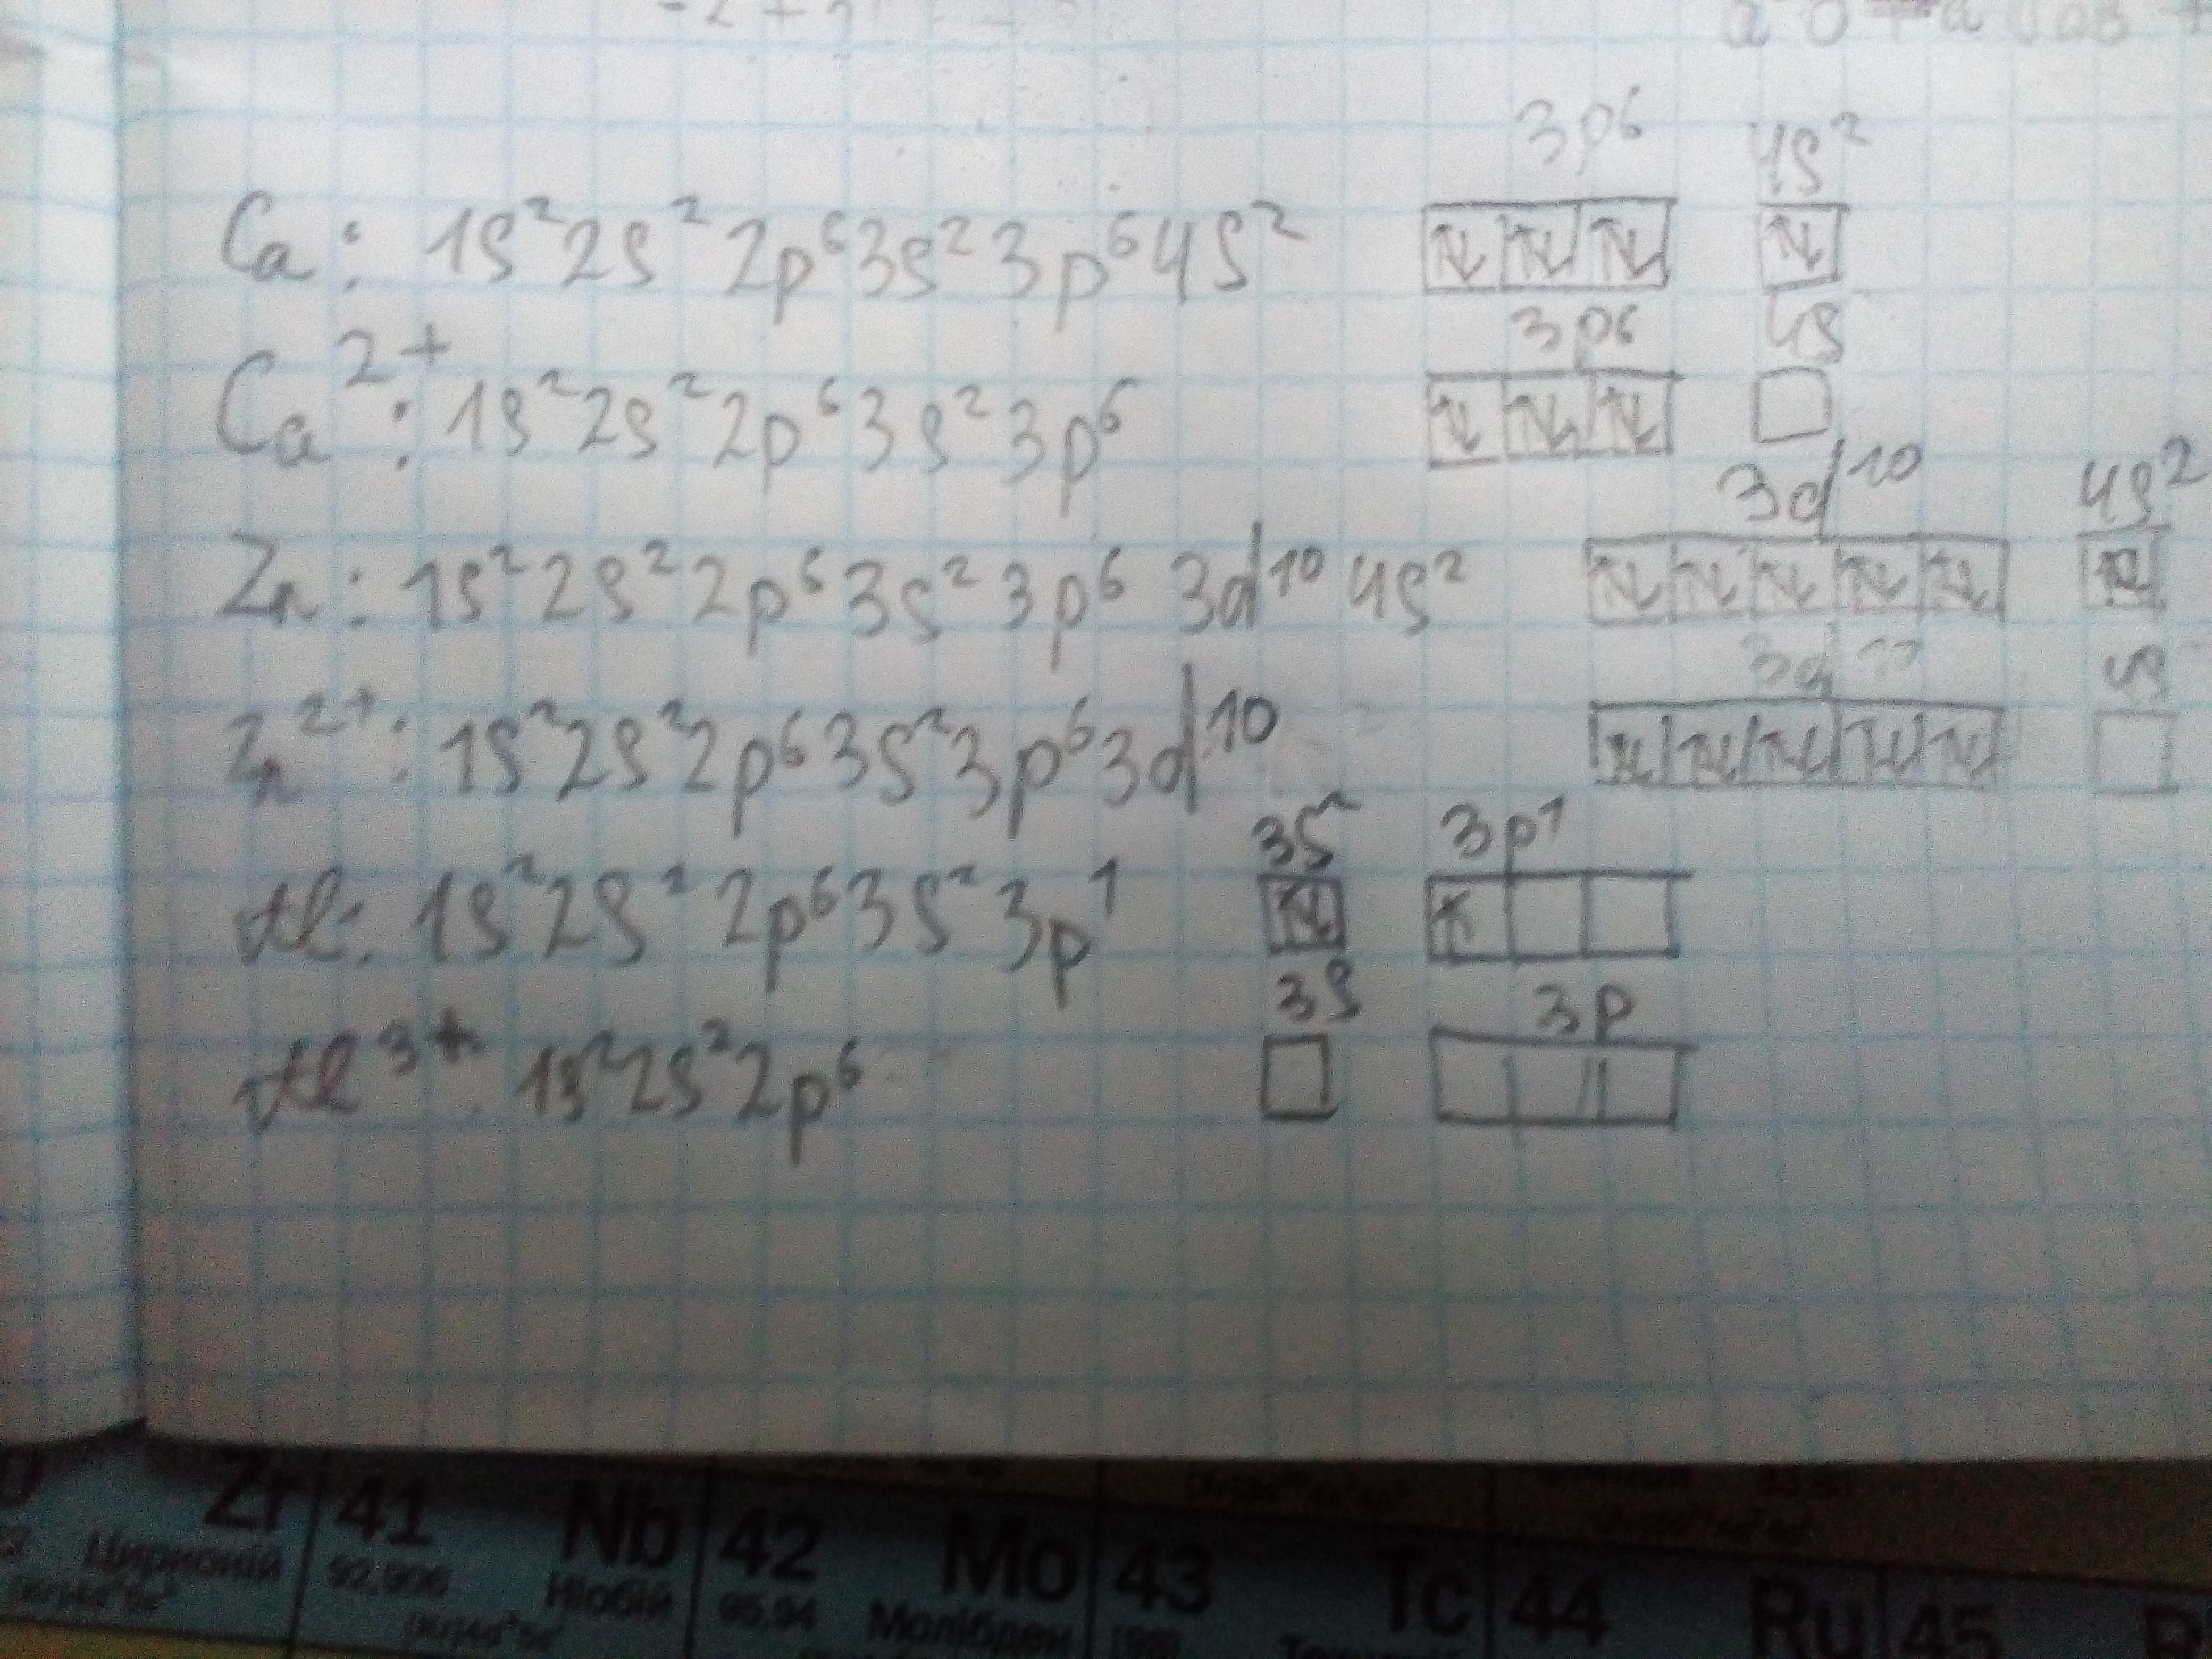 3p⁶ 4s²
Ca: 1s²2s²2p⁶3s²3p⁶4s²
3p⁶ 4s
Ca²⁺: 1s²2s²2p⁶3s²3p⁶
3d¹⁰ 4s²
Zn: 1s²2s²2p⁶3s²3p⁶3d¹⁰4s²
3d¹⁰ 4s
Zn²⁺: 1s²2s²2p⁶3s²3p⁶3d¹⁰
3s² 3p¹
Al: 1s²2s²2p⁶3s²3p¹
3s 3p
Al³⁺: 1s²2s²2p⁶
Zr 41 Nb 42 Mo 43 Tc 44 Ru 45
Цирконій 92.906 Ніобій 95.94 Молібден